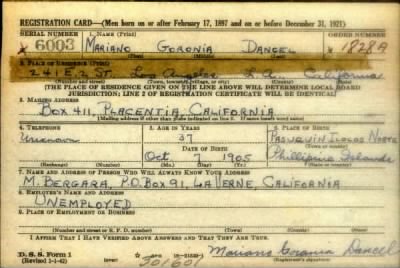 REGISTRATION CARD—(Men born on or after February 17, 1897 and on or before December 31, 1921)
SERIAL NUMBER
1. NAME (Print)
ORDER NUMBER
6003
MARIANO GORONIA DANCEL
1828A
2. PLACE OF RESIDENCE (Print)
241 E. 2 ST. Los Angeles L.A. California
(Number and street) (Town, township, village, or city) (County) (State)
[THE PLACE OF RESIDENCE GIVEN ON THE LINE ABOVE WILL DETERMINE LOCAL BOARD
JURISDICTION; LINE 2 OF REGISTRATION CERTIFICATE WILL BE IDENTICAL]
3. MAILING ADDRESS
BOX 411, PLACENTIA, CALIFORNIA
[Mailing address if other than place indicated on line 2. If same insert word same]
4. TELEPHONE
5. AGE IN YEARS
6. PLACE OF BIRTH
Unknown
37
PASUQUIN ILOCOS NORTE
DATE OF BIRTH
(Town or county)
Oct 7 1905
Phillipine Islands
(Exchange) (Number) (Mo.) (Day) (Yr.) (State or country)
7. NAME AND ADDRESS OF PERSON WHO WILL ALWAYS KNOW YOUR ADDRESS
M. BERGARA, P.O. BOX 91, LA VERNE, CALIFORNIA
8. EMPLOYER'S NAME AND ADDRESS
UNEMPLOYED
9. PLACE OF EMPLOYMENT OR BUSINESS
(Number and street or R. F. D. number) (Town) (County) (State)
I AFFIRM THAT I HAVE VERIFIED ABOVE ANSWERS AND THAT THEY ARE TRUE.
D. S. S. Form 1
(Revised 1-1-42) (over)
Mariano Goronia Dancel